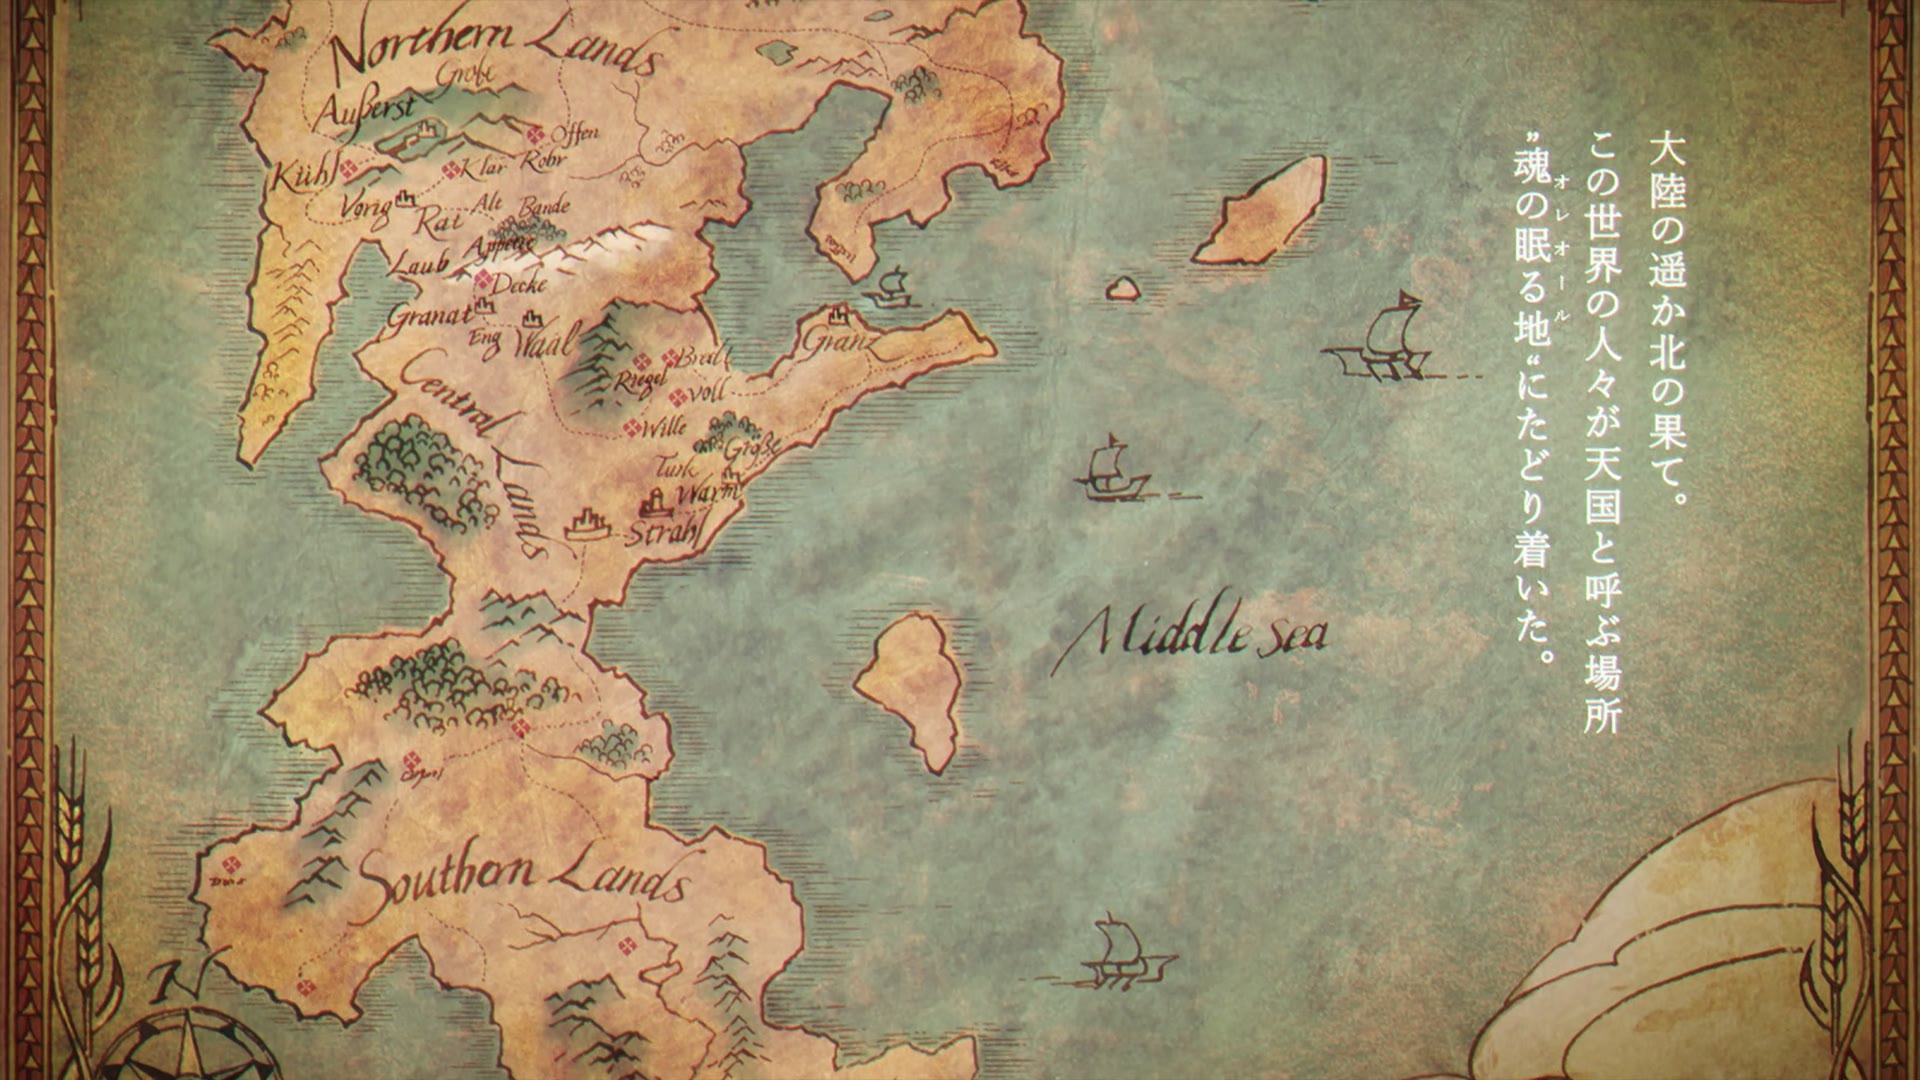 大陸の遥か北の果て。
この世界の人々が天国と呼ぶ場所
オレオール
"魂の眠る地"にたどり着いた。
Northern Lands
Grobe
Außerst
Offen
Kühl
Klar
Rohr
Vorig
Rat
Alt
Bande
Laub
Appetit
Decke
Granat
Eng
Waal
Granz
Riegel
Brett
Voll
Central Lands
Wille
Große
Turk
Warm
Strahl
Middle Sea
Southern Lands
N